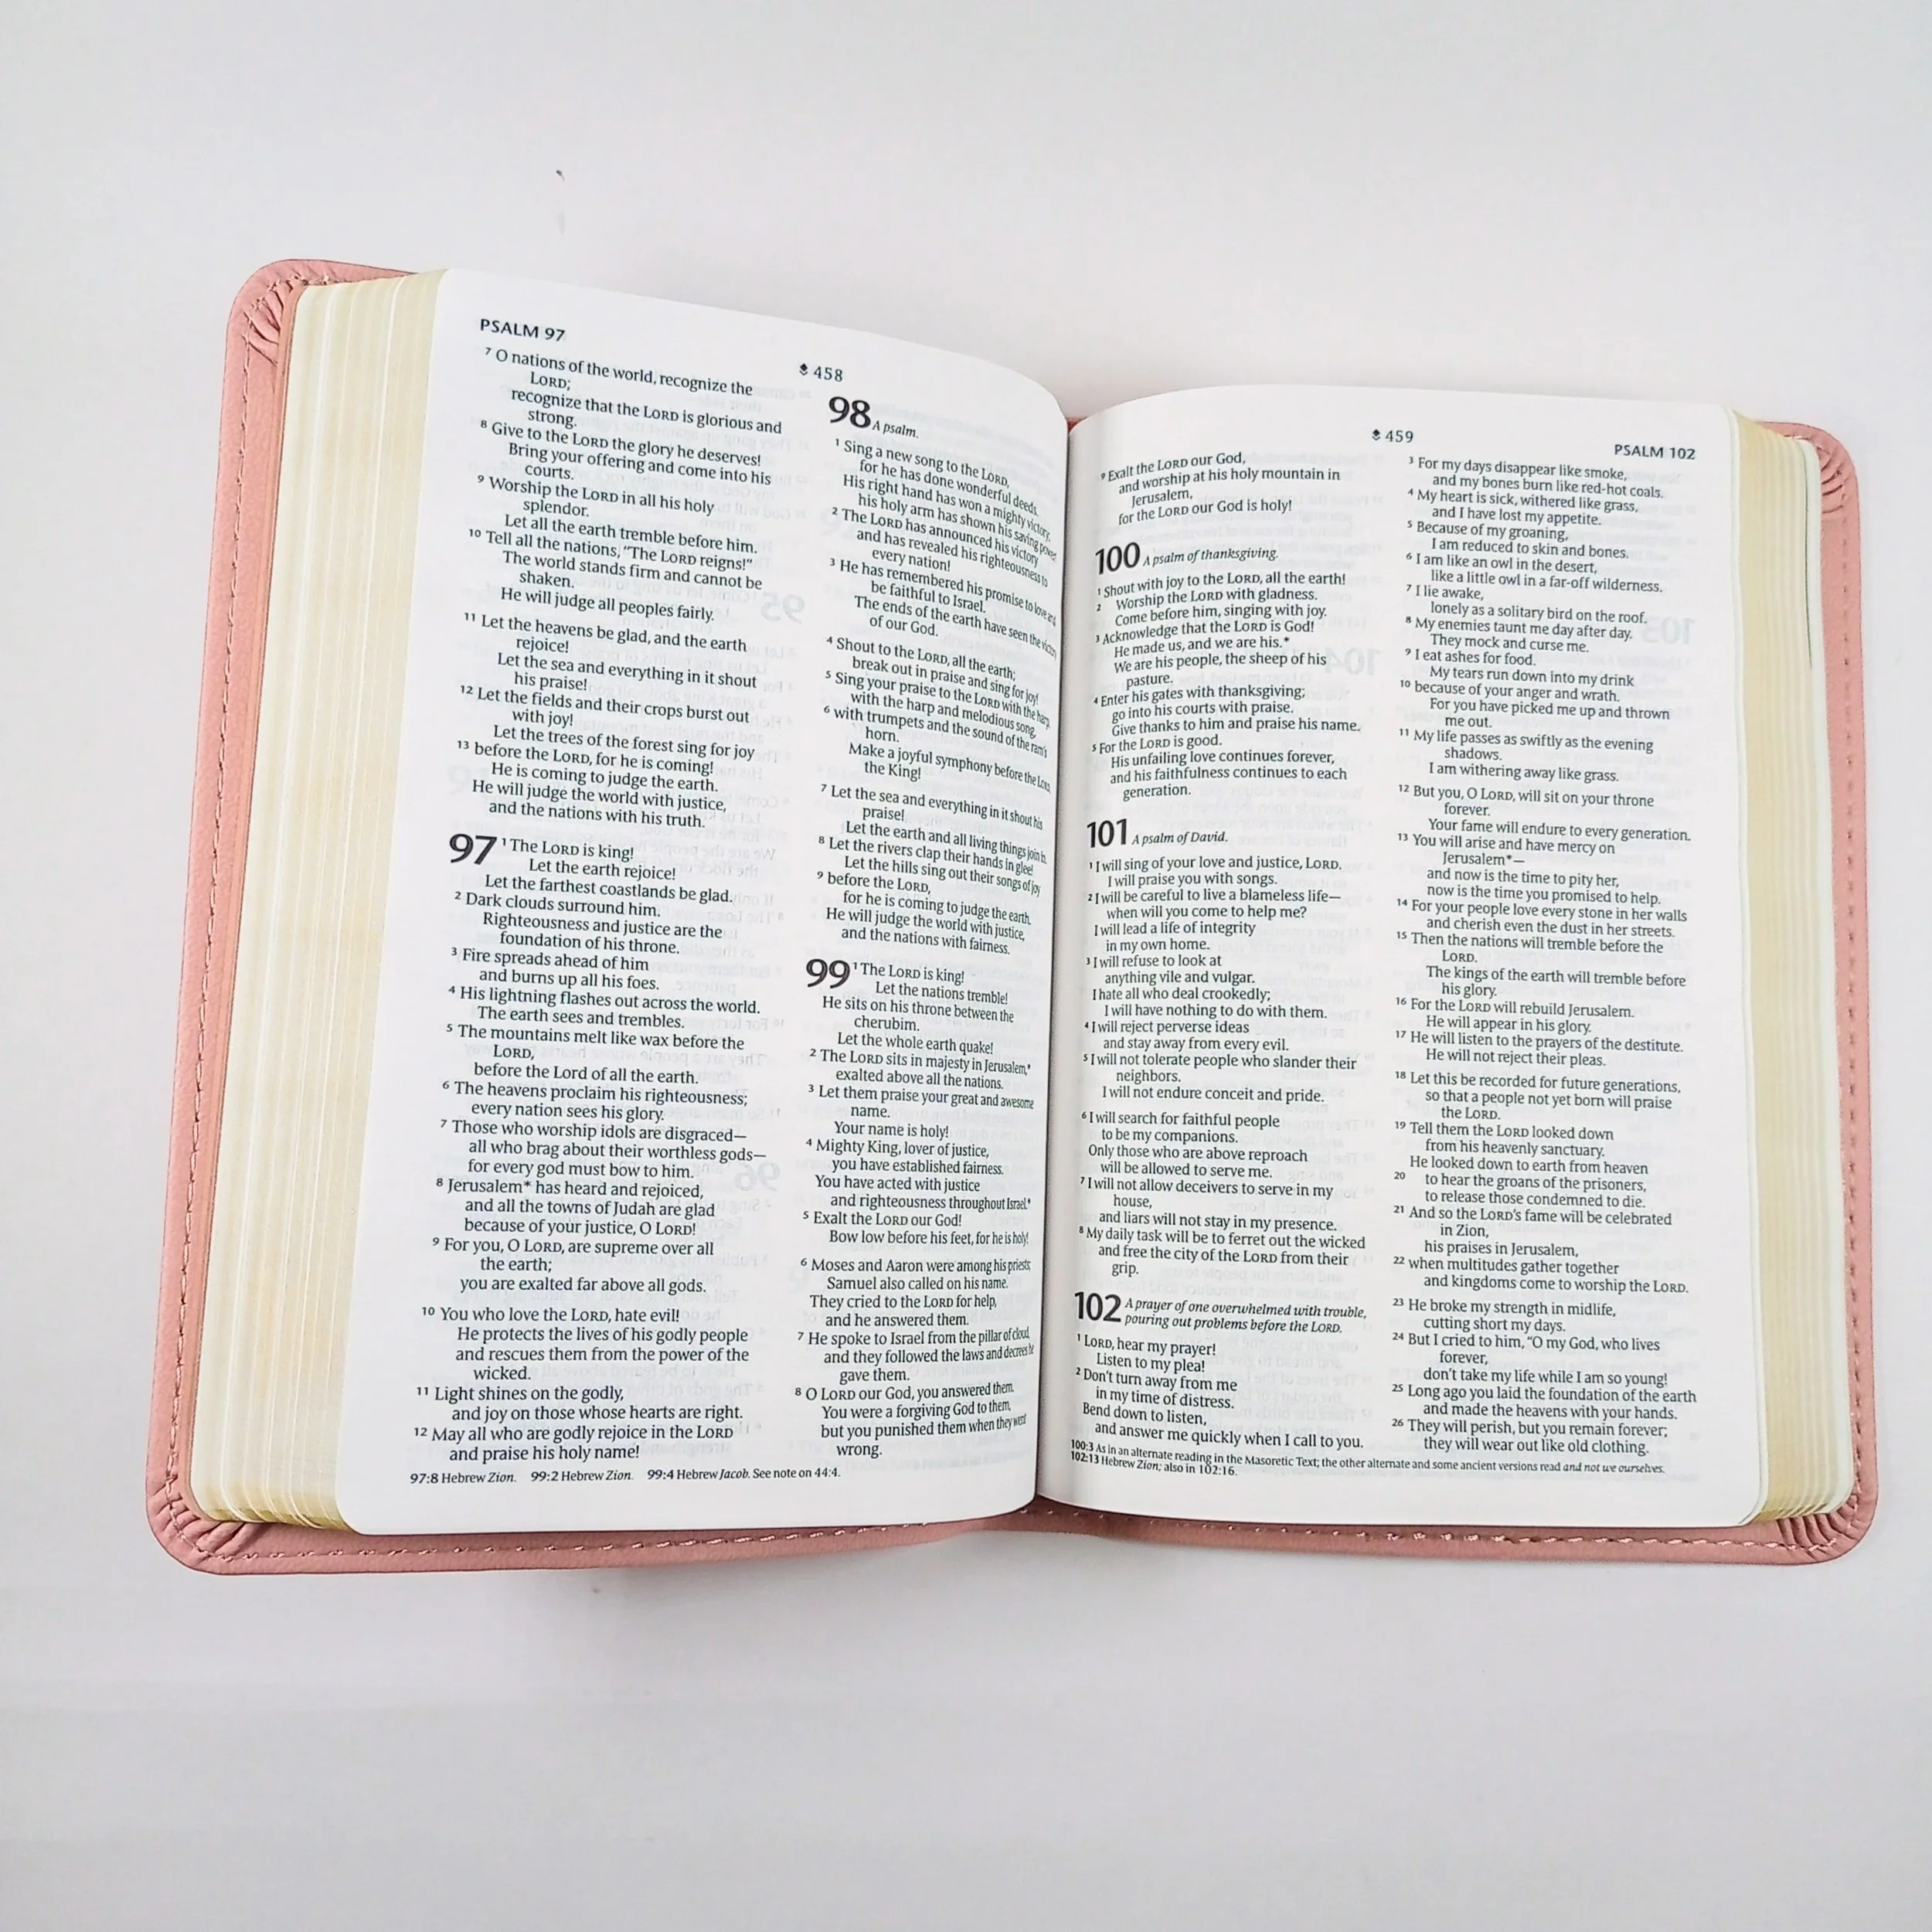 PSALM 97
458
7 O nations of the world, recognize the
LORD;
recognize that the LORD is glorious and
strong.
8 Give to the LORD the glory he deserves!
Bring your offering and come into his
courts.
9 Worship the LORD in all his holy
splendor.
Let all the earth tremble before him.
10 Tell all the nations, “The LORD reigns!”
The world stands firm and cannot be
shaken.
He will judge all peoples fairly.
11 Let the heavens be glad, and the earth
rejoice!
Let the sea and everything in it shout
his praise!
12 Let the fields and their crops burst out
with joy!
Let the trees of the forest sing for joy
13 before the LORD, for he is coming!
He is coming to judge the earth.
He will judge the world with justice,
and the nations with his truth.
97 1 The LORD is king!
Let the earth rejoice!
Let the farthest coastlands be glad.
2 Dark clouds surround him.
Righteousness and justice are the
foundation of his throne.
3 Fire spreads ahead of him
and burns up all his foes.
4 His lightning flashes out across the world.
The earth sees and trembles.
5 The mountains melt like wax before the
LORD,
before the Lord of all the earth.
6 The heavens proclaim his righteousness;
every nation sees his glory.
7 Those who worship idols are disgraced—
all who brag about their worthless gods—
for every god must bow to him.
8 Jerusalem* has heard and rejoiced,
and all the towns of Judah are glad
because of your justice, O LORD!
9 For you, O LORD, are supreme over all
the earth;
you are exalted far above all gods.
10 You who love the LORD, hate evil!
He protects the lives of his godly people
and rescues them from the power of the
wicked.
11 Light shines on the godly,
and joy on those whose hearts are right.
12 May all who are godly rejoice in the LORD
and praise his holy name!
98 A psalm.
1 Sing a new song to the LORD,
for he has done wonderful deeds.
His right hand has won a mighty victory;
his holy arm has shown his saving power!
2 The LORD has announced his victory
and has revealed his righteousness to
every nation!
3 He has remembered his promise to love and
be faithful to Israel.
The ends of the earth have seen the victory
of our God.
4 Shout to the LORD, all the earth;
break out in praise and sing for joy!
5 Sing your praise to the LORD with the harp,
with the harp and melodious song,
6 with trumpets and the sound of the ram's
horn.
Make a joyful symphony before the LORD,
the King!
7 Let the sea and everything in it shout his
praise!
Let the earth and all living things join in.
8 Let the rivers clap their hands in glee!
Let the hills sing out their songs of joy
9 before the LORD,
for he is coming to judge the earth.
He will judge the world with justice,
and the nations with fairness.
99 1 The LORD is king!
Let the nations tremble!
He sits on his throne between the
cherubim.
Let the whole earth quake!
2 The LORD sits in majesty in Jerusalem,*
exalted above all the nations.
3 Let them praise your great and awesome
name.
Your name is holy!
4 Mighty King, lover of justice,
you have established fairness.
You have acted with justice
and righteousness throughout Israel.*
5 Exalt the LORD our God!
Bow low before his feet, for he is holy!
6 Moses and Aaron were among his priests;
Samuel also called on his name.
They cried to the LORD for help,
and he answered them.
7 He spoke to Israel from the pillar of cloud,
and they followed the laws and decrees he
gave them.
8 O LORD our God, you answered them.
You were a forgiving God to them,
but you punished them when they went
wrong.
97:8 Hebrew Zion. 99:2 Hebrew Zion. 99:4 Hebrew Jacob. See note on 44:4.
459
PSALM 102
9 Exalt the LORD our God,
and worship at his holy mountain in
Jerusalem,
for the LORD our God is holy!
100 A psalm of thanksgiving.
1 Shout with joy to the LORD, all the earth!
2 Worship the LORD with gladness.
Come before him, singing with joy.
3 Acknowledge that the LORD is God!
He made us, and we are his.*
We are his people, the sheep of his
pasture.
4 Enter his gates with thanksgiving;
go into his courts with praise.
Give thanks to him and praise his name.
5 For the LORD is good.
His unfailing love continues forever,
and his faithfulness continues to each
generation.
101 A psalm of David.
1 I will sing of your love and justice, LORD.
I will praise you with songs.
2 I will be careful to live a blameless life—
when will you come to help me?
I will lead a life of integrity
in my own home.
3 I will refuse to look at
anything vile and vulgar.
I hate all who deal crookedly;
I will have nothing to do with them.
4 I will reject perverse ideas
and stay away from every evil.
5 I will not tolerate people who slander their
neighbors.
I will not endure conceit and pride.
6 I will search for faithful people
to be my companions.
Only those who are above reproach
will be allowed to serve me.
7 I will not allow deceivers to serve in my
house,
and liars will not stay in my presence.
8 My daily task will be to ferret out the wicked
and free the city of the LORD from their
grip.
102 A prayer of one overwhelmed with trouble,
pouring out problems before the LORD.
1 LORD, hear my prayer!
Listen to my plea!
2 Don't turn away from me
in my time of distress.
Bend down to listen,
and answer me quickly when I call to you.
3 For my days disappear like smoke,
and my bones burn like red-hot coals.
4 My heart is sick, withered like grass,
and I have lost my appetite.
5 Because of my groaning,
I am reduced to skin and bones.
6 I am like an owl in the desert,
like a little owl in a far-off wilderness.
7 I lie awake,
lonely as a solitary bird on the roof.
8 My enemies taunt me day after day.
They mock and curse me.
9 I eat ashes for food.
My tears run down into my drink
10 because of your anger and wrath.
For you have picked me up and thrown
me out.
11 My life passes as swiftly as the evening
shadows.
I am withering away like grass.
12 But you, O LORD, will sit on your throne
forever.
Your fame will endure to every generation.
13 You will arise and have mercy on
Jerusalem*—
and now is the time to pity her,
now is the time you promised to help.
14 For your people love every stone in her walls
and cherish even the dust in her streets.
15 Then the nations will tremble before the
LORD.
The kings of the earth will tremble before
his glory.
16 For the LORD will rebuild Jerusalem.
He will appear in his glory.
17 He will listen to the prayers of the destitute.
He will not reject their pleas.
18 Let this be recorded for future generations,
so that a people not yet born will praise
the LORD.
19 Tell them the LORD looked down
from his heavenly sanctuary.
He looked down to earth from heaven
20 to hear the groans of the prisoners,
to release those condemned to die.
21 And so the LORD's fame will be celebrated
in Zion,
his praises in Jerusalem,
22 when multitudes gather together
and kingdoms come to worship the LORD.
23 He broke my strength in midlife,
cutting short my days.
24 But I cried to him, “O my God, who lives
forever,
don't take my life while I am so young!
25 Long ago you laid the foundation of the earth
and made the heavens with your hands.
26 They will perish, but you remain forever;
they will wear out like old clothing.
100:3 As in an alternate reading in the Masoretic Text; the other alternate and some ancient versions read and not we ourselves.
102:13 Hebrew Zion; also in 102:16.